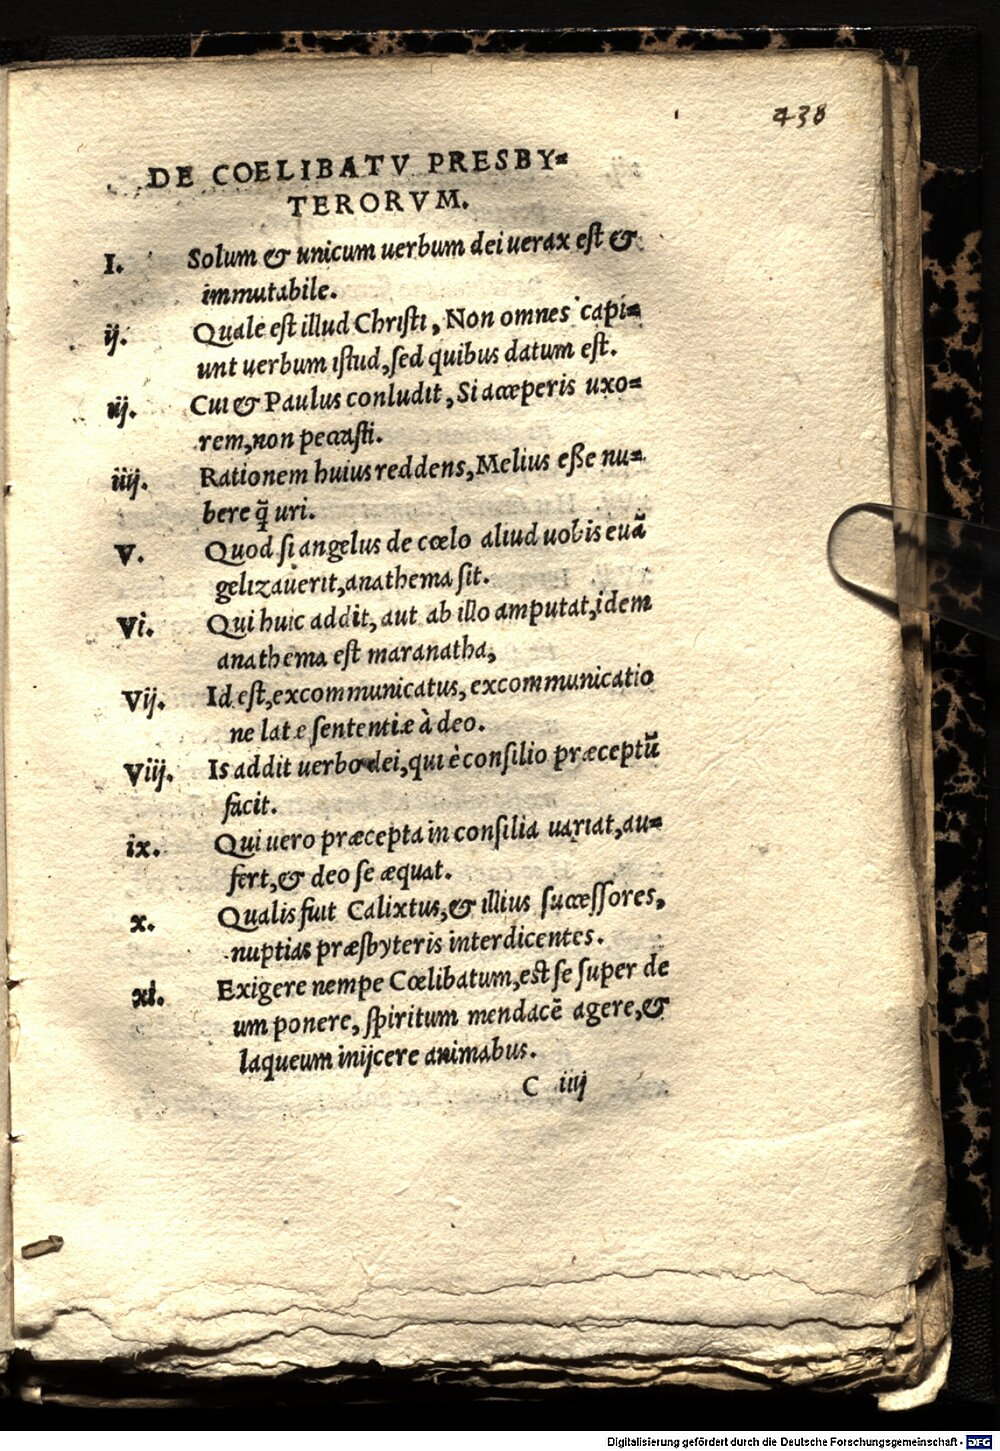 438
DE COELIBATV PRESBY=
TERORVM.
I. Solum & unicum uerbum dei uerax est &
immutabile.
ij. Quale est illud Christi, Non omnes capi=
unt uerbum istud, sed quibus datum est.
iij. Cui & Paulus conludit, Si acceperis uxo=
rem, non peccasti.
iiij. Rationem huius reddens, Melius eße nu=
bere q̃ uri.
V. Quod si angelus de cœlo aliud uobis euã
gelizauerit, anathema sit.
Vi. Qui huic addit, aut ab illo amputat, idem
anathema est maranatha,
Vij. Id est, excommunicatus, excommunicatio
ne late sententiæ à deo.
Viij. Is addit uerbo dei, qui è consilio præceptũ
facit.
ix. Qui uero præcepta in consilia uariat, au=
fert, & deo se æquat.
x. Qualis fuit Calixtus, & illius successores,
nuptias præsbyteris interdicentes.
xi. Exigere nempe Cœlibatum, est se super de
um ponere, spiritum mendacẽ agere, &
laqueum inijcere animabus.
C iiij
Digitalisierung gefördert durch die Deutsche Forschungsgemeinschaft - DFG